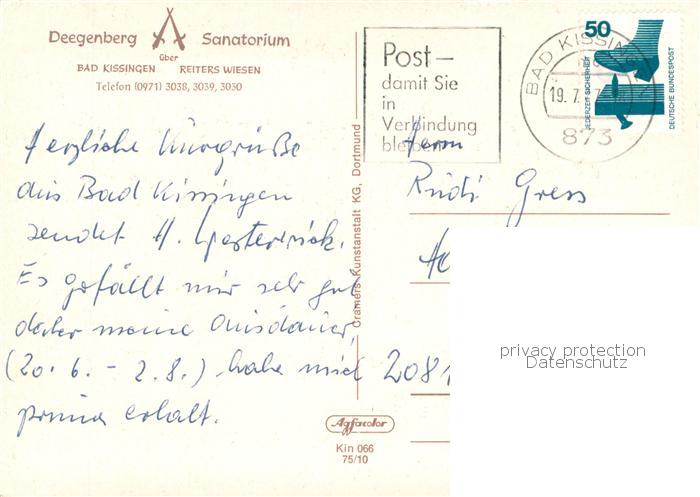 Deegenberg Sanatorium
über
BAD KISSINGEN REITERS WIESEN
Telefon (0971) 3038, 3039, 3030
Herzliche Kurgrüße
aus Bad Kissingen
sendet H.
Es gefällt mir sehr gut
daher meine Ausdauer,
(20.6. - 2.8.) habe mich
prima erholt.
Cramers Kunstanstalt KG, Dortmund
Agfacolor
Kin 066
75/10
Post –
damit Sie
in
Verbindung
bleiben
BAD KISSIN
19.7.
873
50
JEDERZEIT SICHERHEIT
DEUTSCHE BUNDESPOST
Herrn
Rudi Gress
2081
privacy protection
Datenschutz